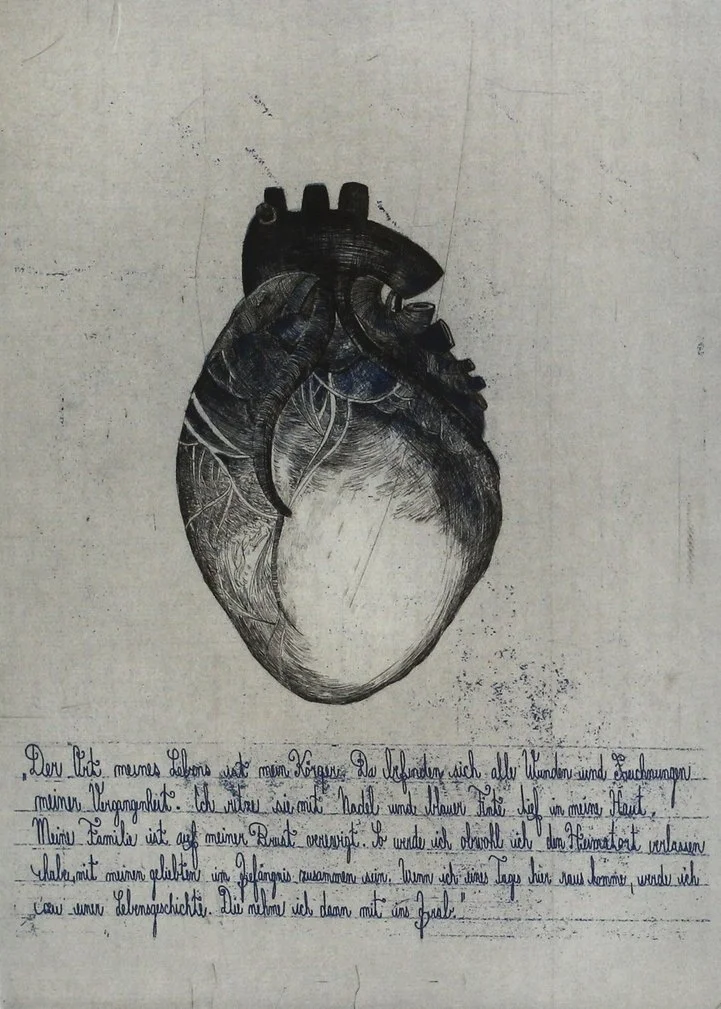 „Der Ort meines Lebens ist mein Körper. Da befinden sich alle Wunden und Zeichnungen
meiner Vergangenheit. Ich ritze sie mit Nadel und blauer Tinte tief in meine Haut.
Meine Familie ist auf meiner Brust verewigt. So werde ich obwohl ich den Heimatort verlassen
habe, mit meinen geliebten im Gefängnis zusammen sein. Wenn ich eines Tages hier raus komme, werde ich
einer Lebensgeschichte. Die nehme ich dann mit ins Grab."